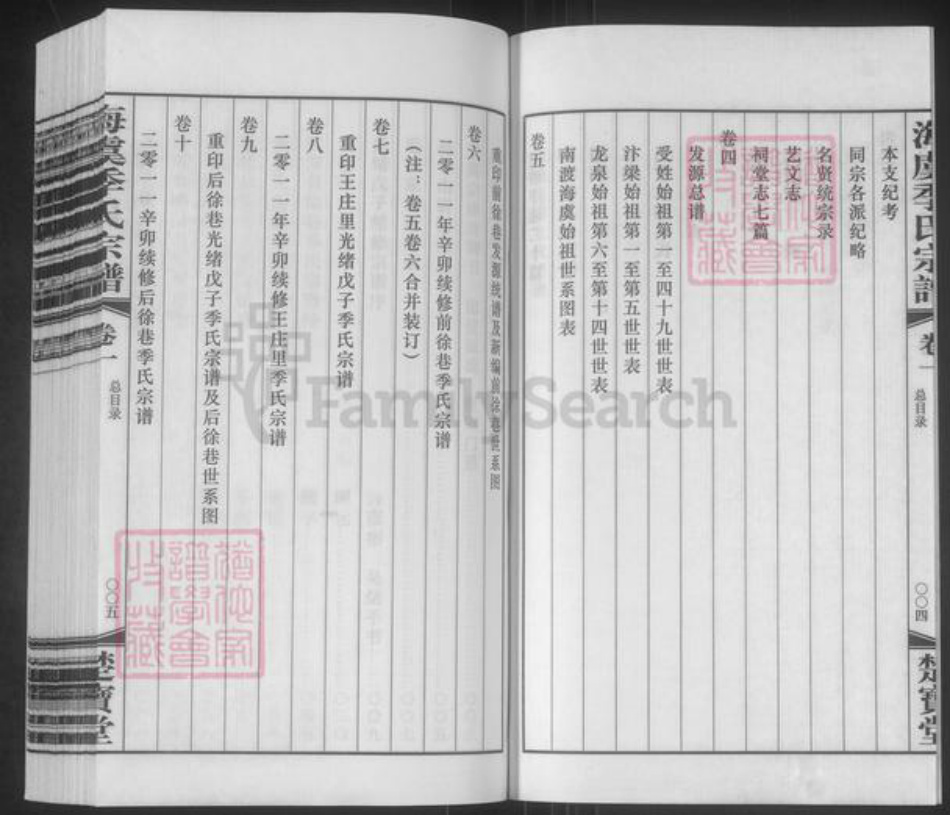 海虞季氏宗谱
卷一
总目录
〇〇四
楚寶堂
本支纪考
同宗各派纪略
名贤统宗录
艺文志
祠堂志七篇
卷四
发源总谱
受姓始祖第一至四十九世世表
汴梁始祖第一至第五世世表
龙泉始祖第六至第十四世世表
南渡海虞始祖世系图表
卷五
重印前徐巷发源统谱及新编前徐巷世系图
卷六
二零一一年辛卯续修前徐巷季氏宗谱
（注：卷五卷六合并装订）
卷七
重印王庄里光绪戊子季氏宗谱
卷八
二零一一年辛卯续修王庄里季氏宗谱
卷九
重印后徐巷光绪戊子季氏宗谱及后徐巷世系图
卷十
二零一一辛卯续修后徐巷季氏宗谱
海虞季氏宗谱
卷一
总目录
〇〇五
楚寶堂
FamilySearch